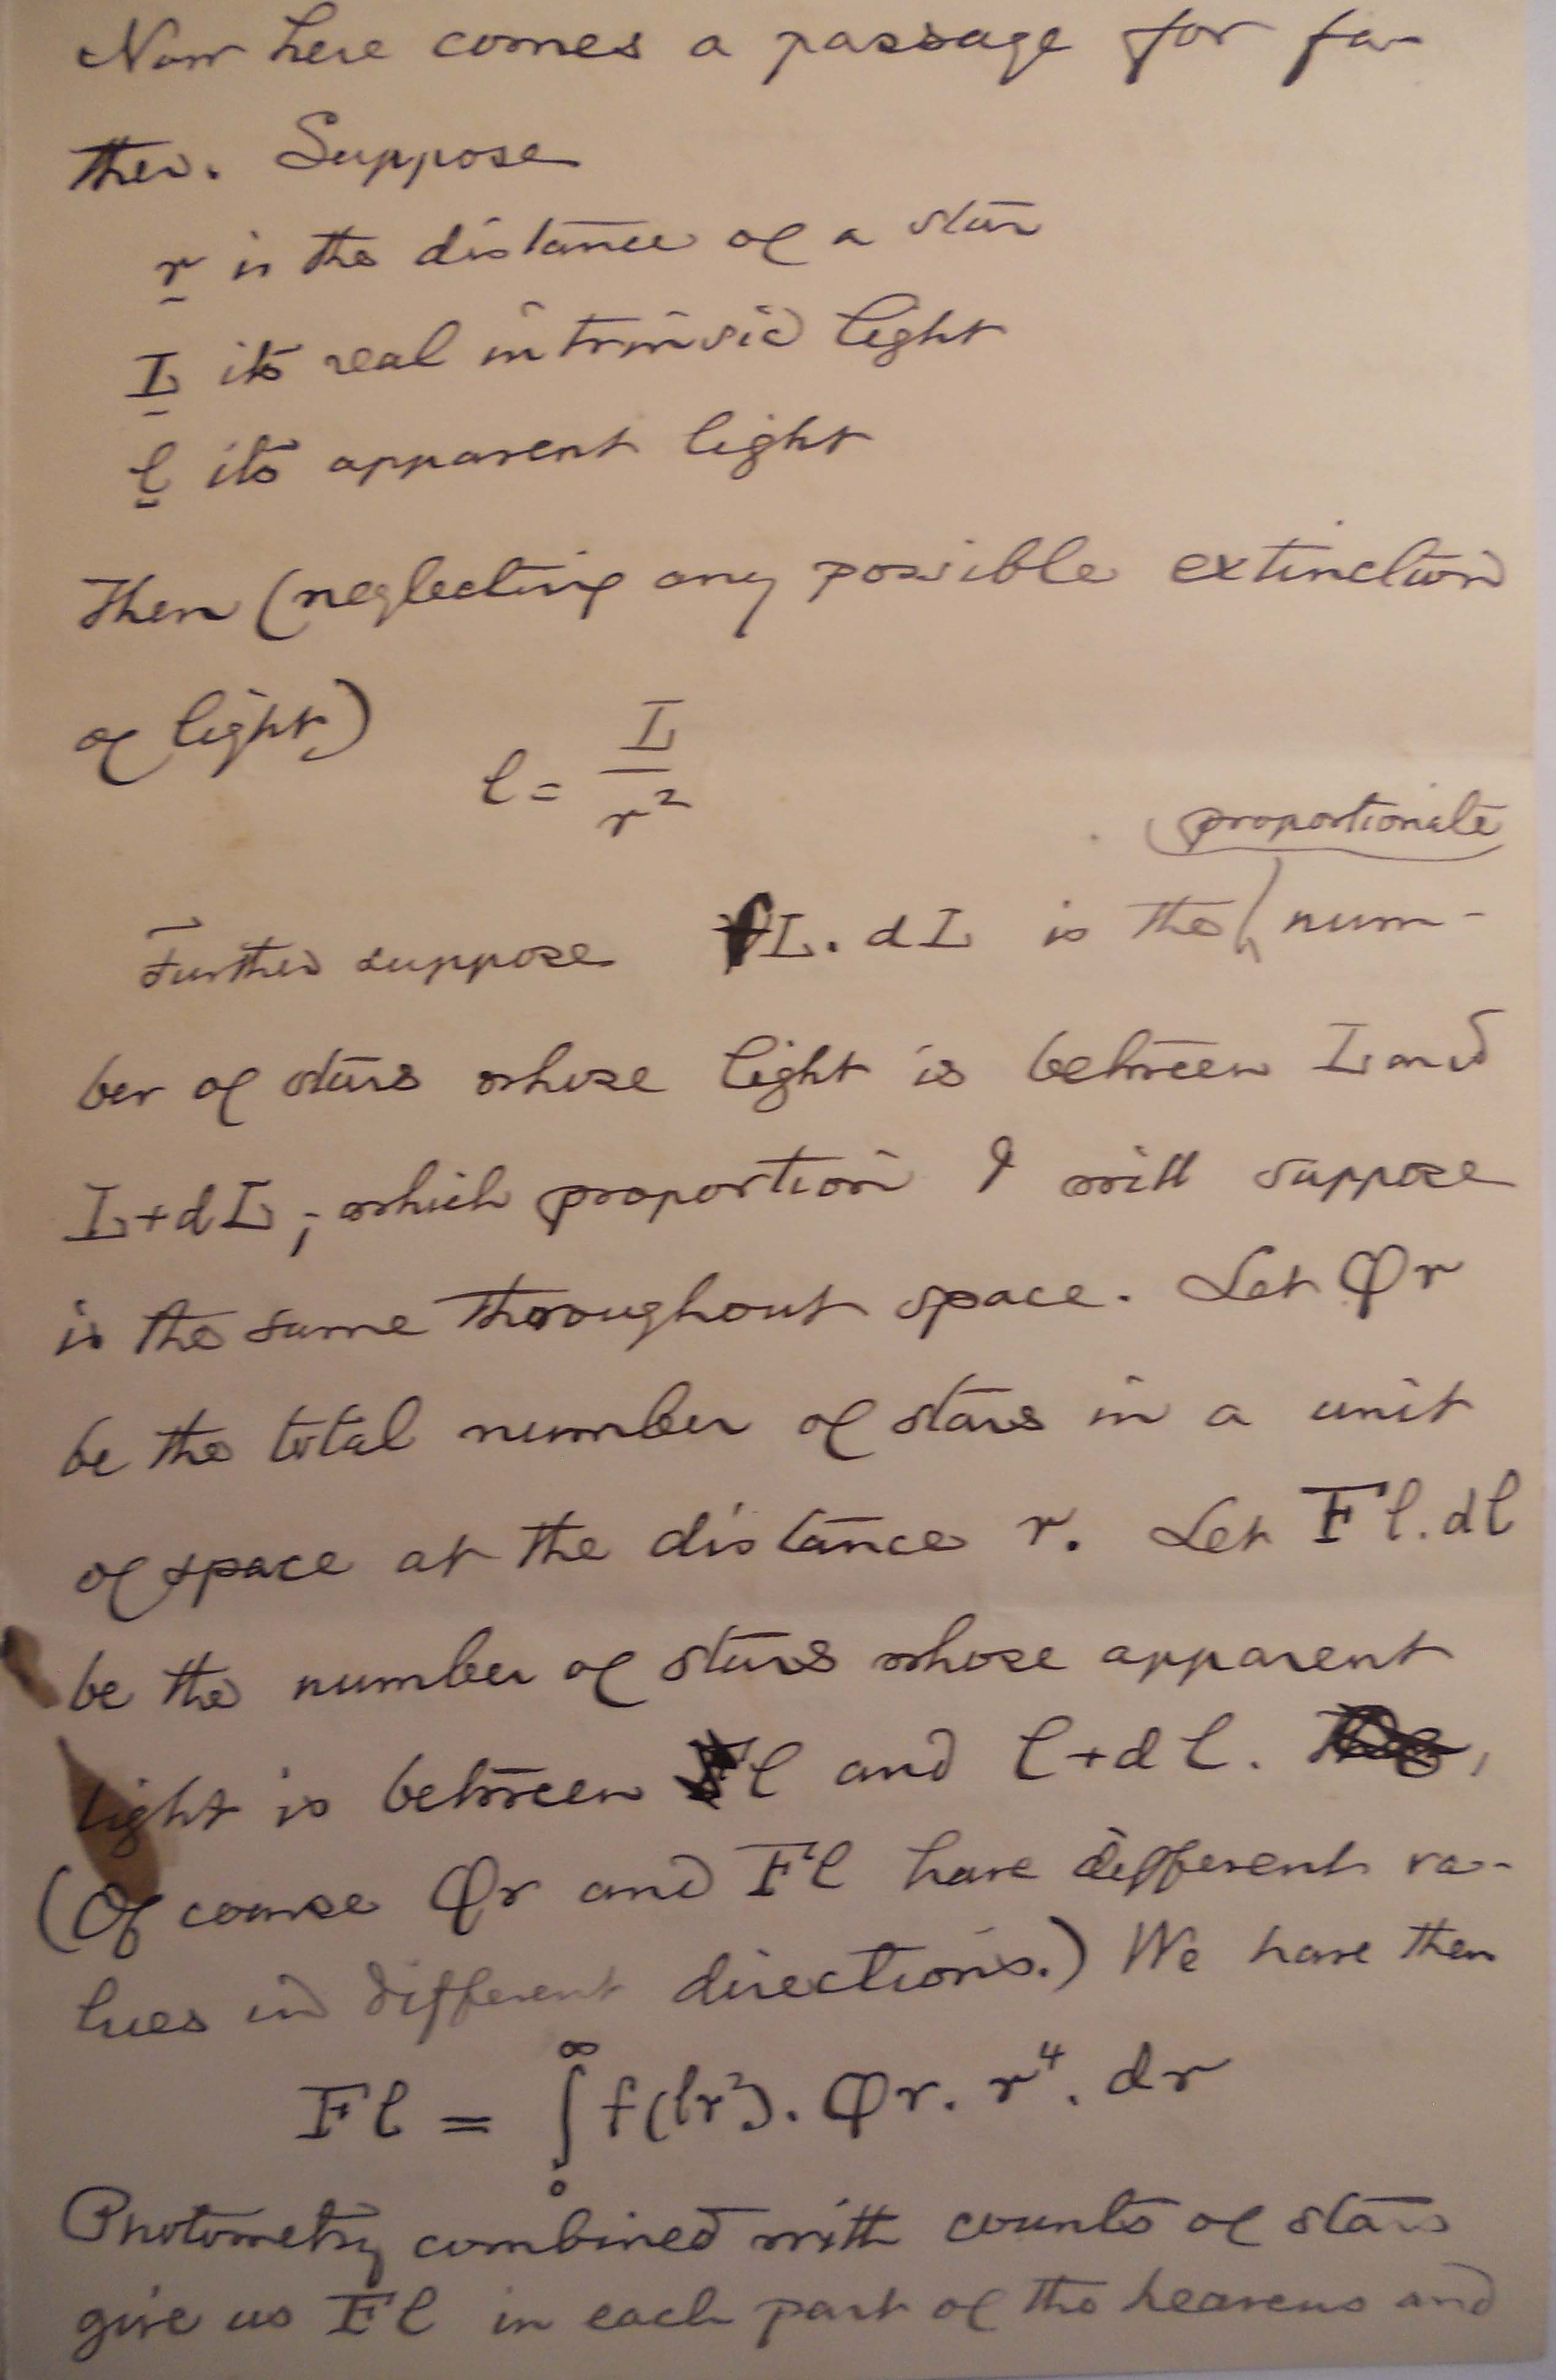 Now here comes a passage for fa-
ther. Suppose
r is the distance of a star
L its real intrinsic light
l its apparent light
Then (neglecting any possible extinction
of light)
l = L/r²
proportionate
Further suppose fL. dL is the num-
ber of stars whose light is between L and
L+dL; which proportion I will suppose
is the same thoroughout space. Let φr
be the total number of stars in a unit
of space at the distance r. Let Fl. dl
be the number of stars whose apparent
light is between l and l+dl.
(Of course φr and Fl have different va-
lues in different directions.) We have then
Fl = ∫₀^∞ f(lr²). φr. r⁴. dr
Photometry combined with counts of stars
give us Fl in each part of the heavens and